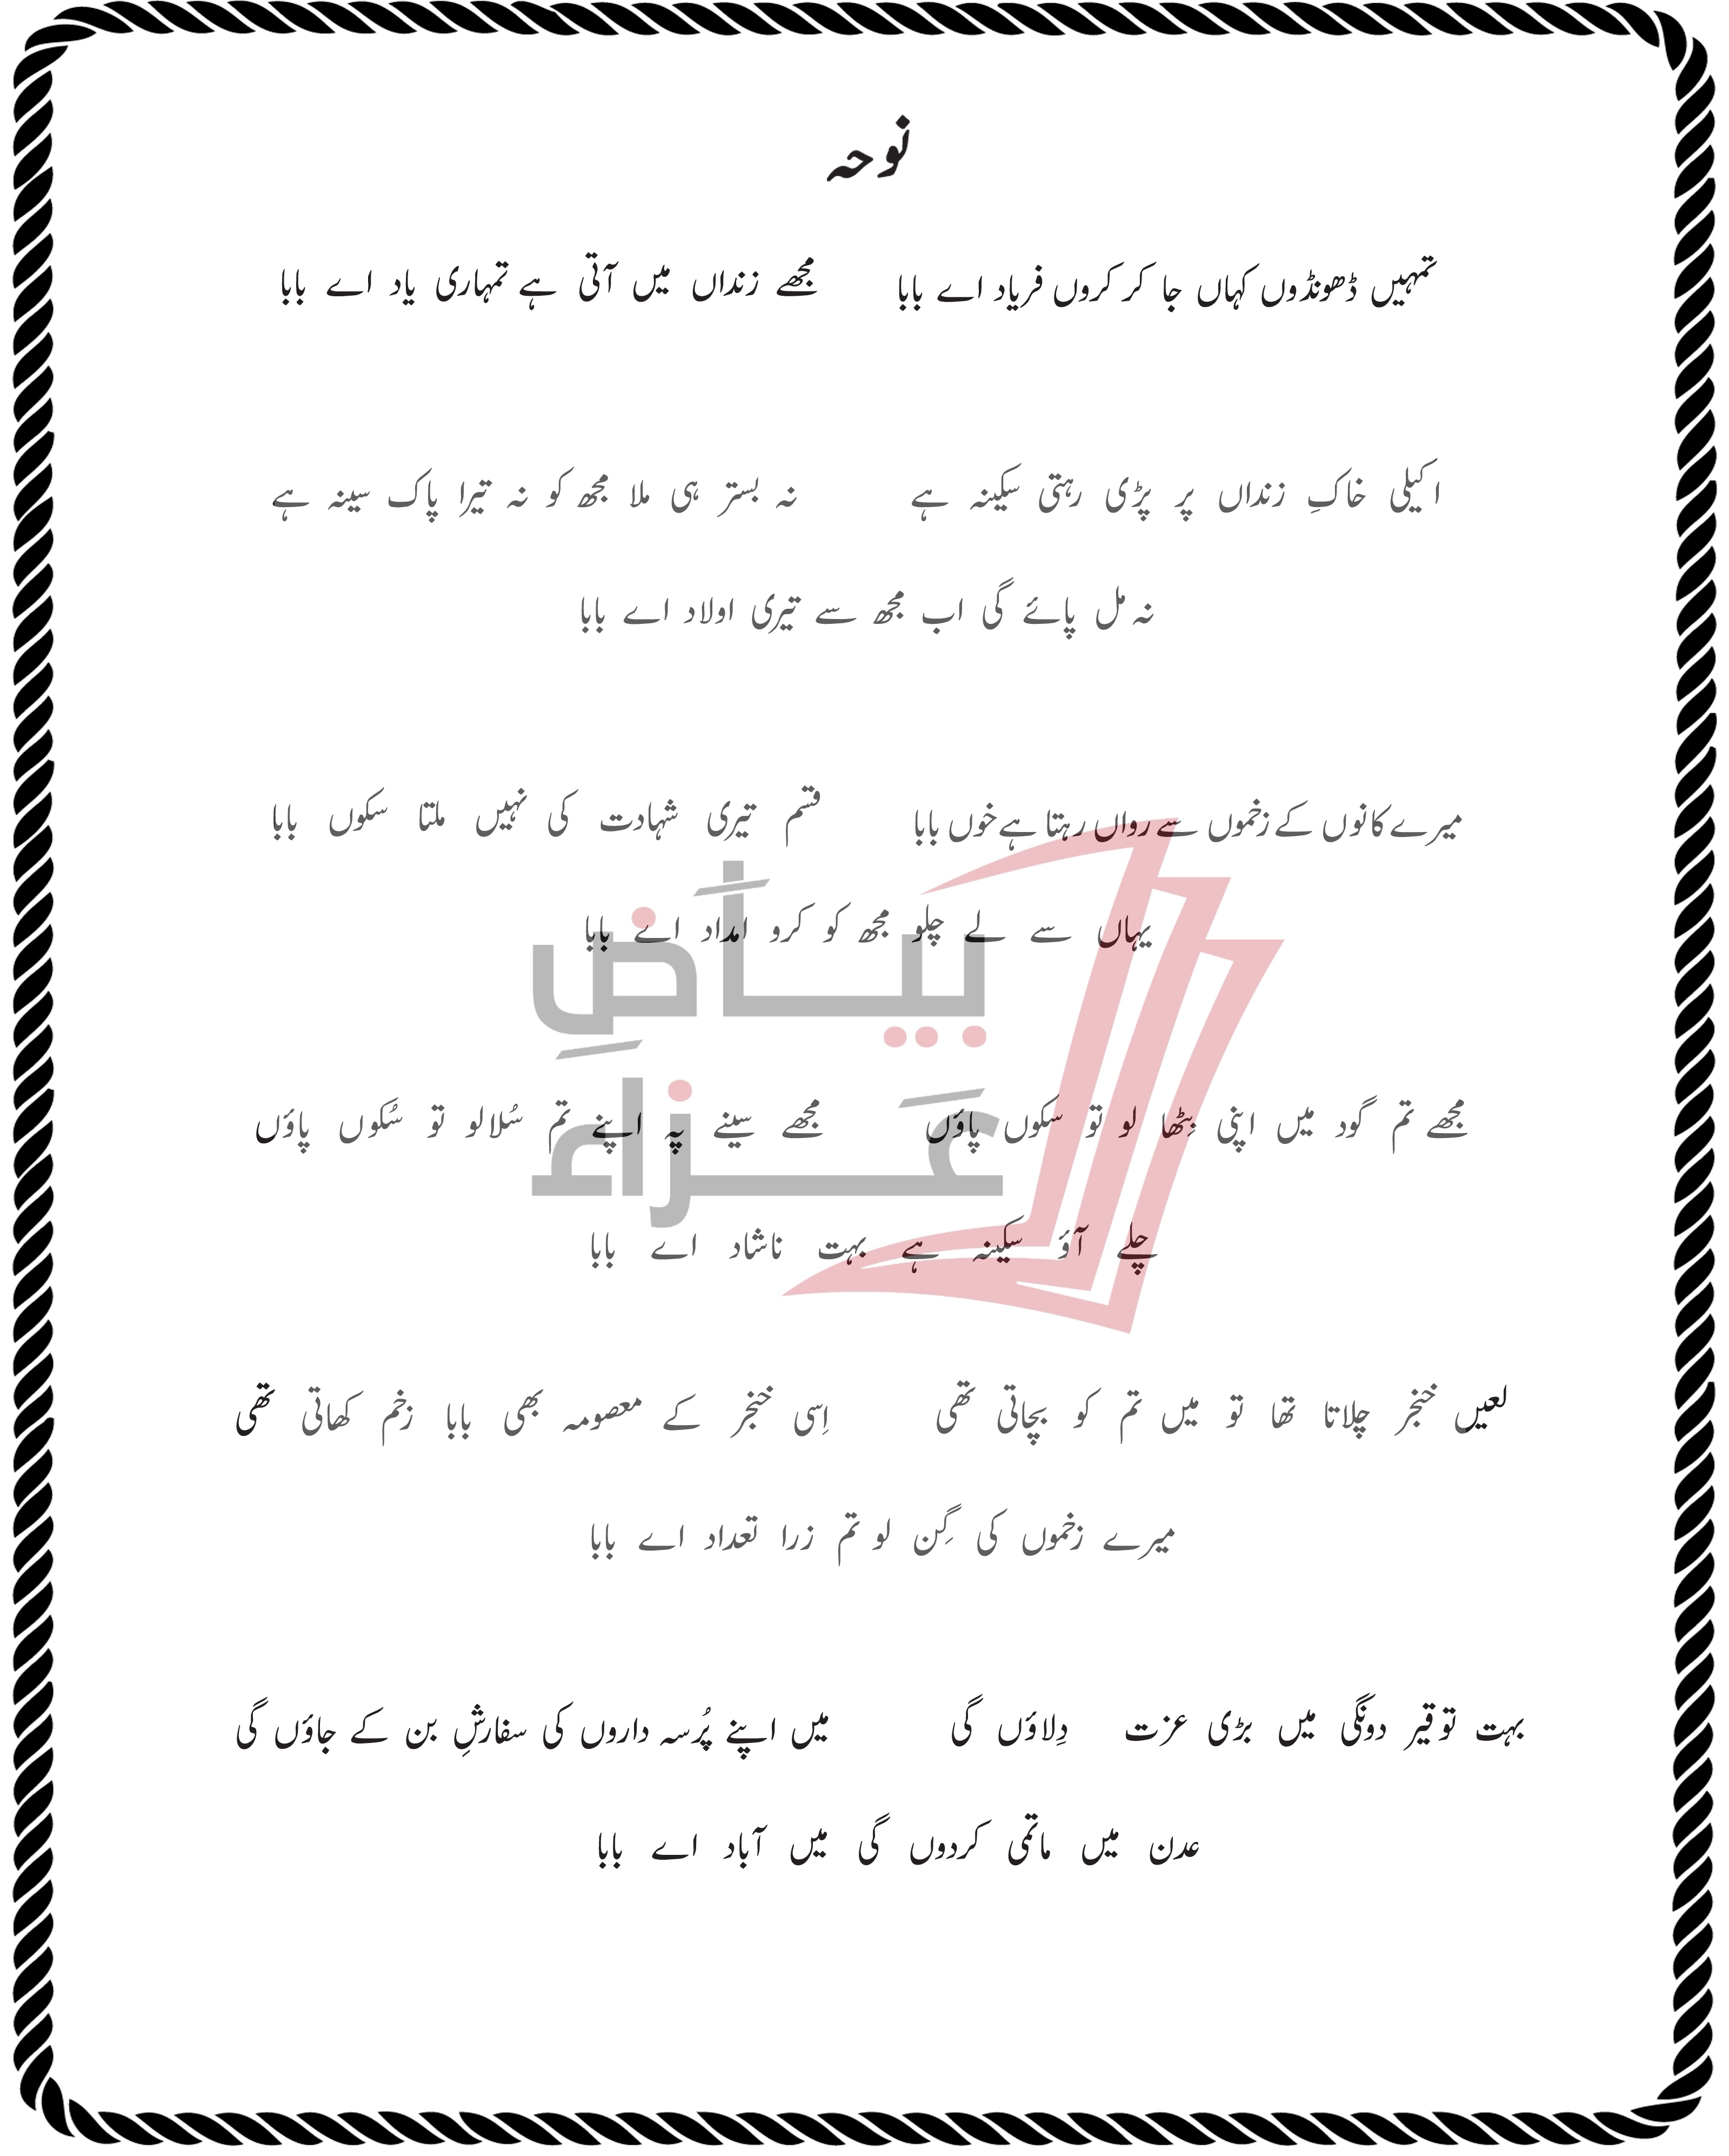 نوحہ
تمہیں ڈھونڈوں کہاں جا کر کروں فریاد اے بابا مجھے زنداں میں آتی ہے تمہاری یاد اے بابا
اکیلی خاکِ زنداں پر پڑی رہتی سکینہ ہے نہ بستر ہی ملا مجھ کو نہ تیرا پاک سینہ ہے
نہ مل پائے گی اب مجھ سے تیری اولاد اے بابا
میرے کانوں کے زخموں سے رواں رہتا ہے خوں بابا قسم تیری شہادت کی نہیں ملتا سکوں بابا
یہاں سے لے چلو مجھ کو کرو امداد اے بابا
بیاضِ
عَزاء
مجھے تم گود میں اپنی بِٹھا لو تو سکوں پاؤں مجھے سینے پہ اپنے تم سُلالو تو سُکوں پاؤں
چلے آؤ سکینہ ہے بہت ناشاد اے بابا
لعیں خنجر چلاتا تھا تو میں تم کو بچاتی تھی اِسی خنجر کے معصومہ بھی بابا زخم کھاتی تھی
میرے زخموں کی گِن لو تم زرا تعداد اے بابا
بہت توقیر دونگی میں بڑی عزت دِلاؤں گی میں اپنے پُرسہ داروں کی سفارشِ بن کے جاؤں گی
عدن میں ماتمی کردوں گی میں آباد اے بابا